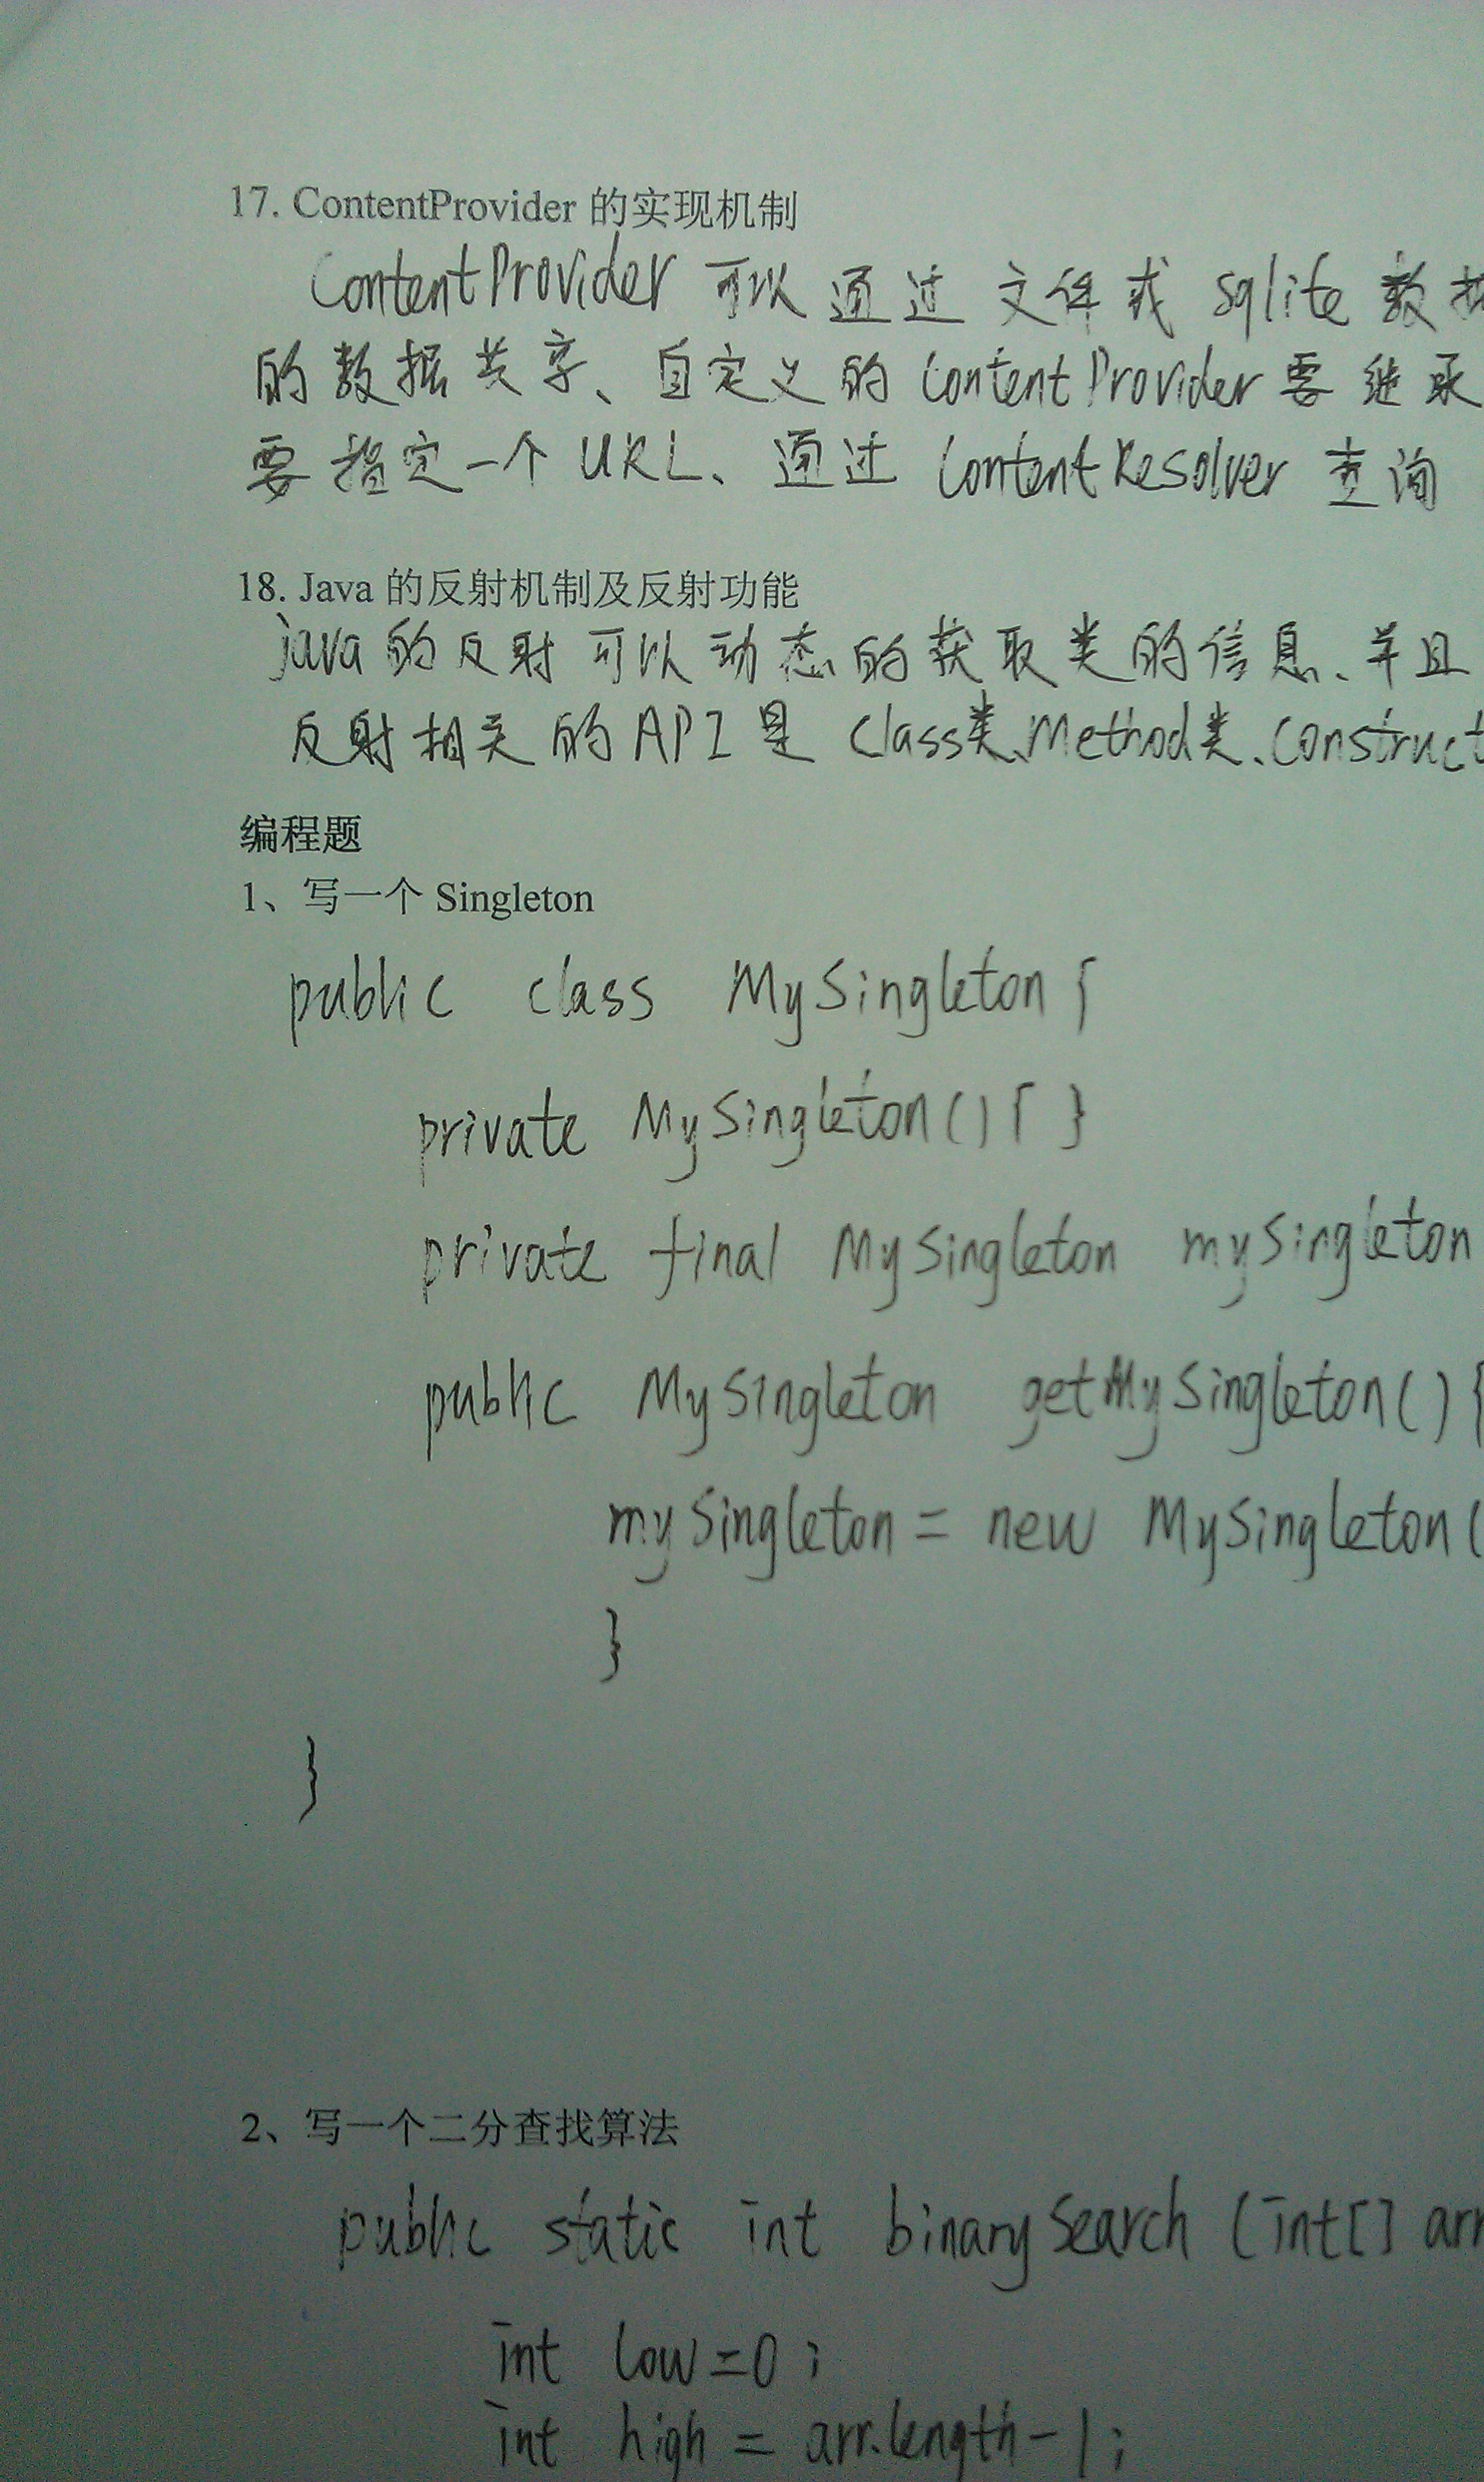 17. ContentProvider 的实现机制
ContentProvider 可以通过文件或 sqlite 数据
的数据共享、自定义的 ContentProvider 要继承
要指定一个 URL、通过 ContentResolver 查询
18. Java 的反射机制及反射功能
java 的反射可以动态的获取类的信息、并且
反射相关的 API 是 Class类、Method类、Construct
编程题
1、写一个 Singleton
public class MySingleton {
private MySingleton() { }
private final MySingleton mySingleton
public MySingleton getMySingleton() {
mySingleton = new MySingleton(
}
}
2、写一个二分查找算法
public static int binarySearch (int[] arr
int low=0;
int high = arr.length-1;